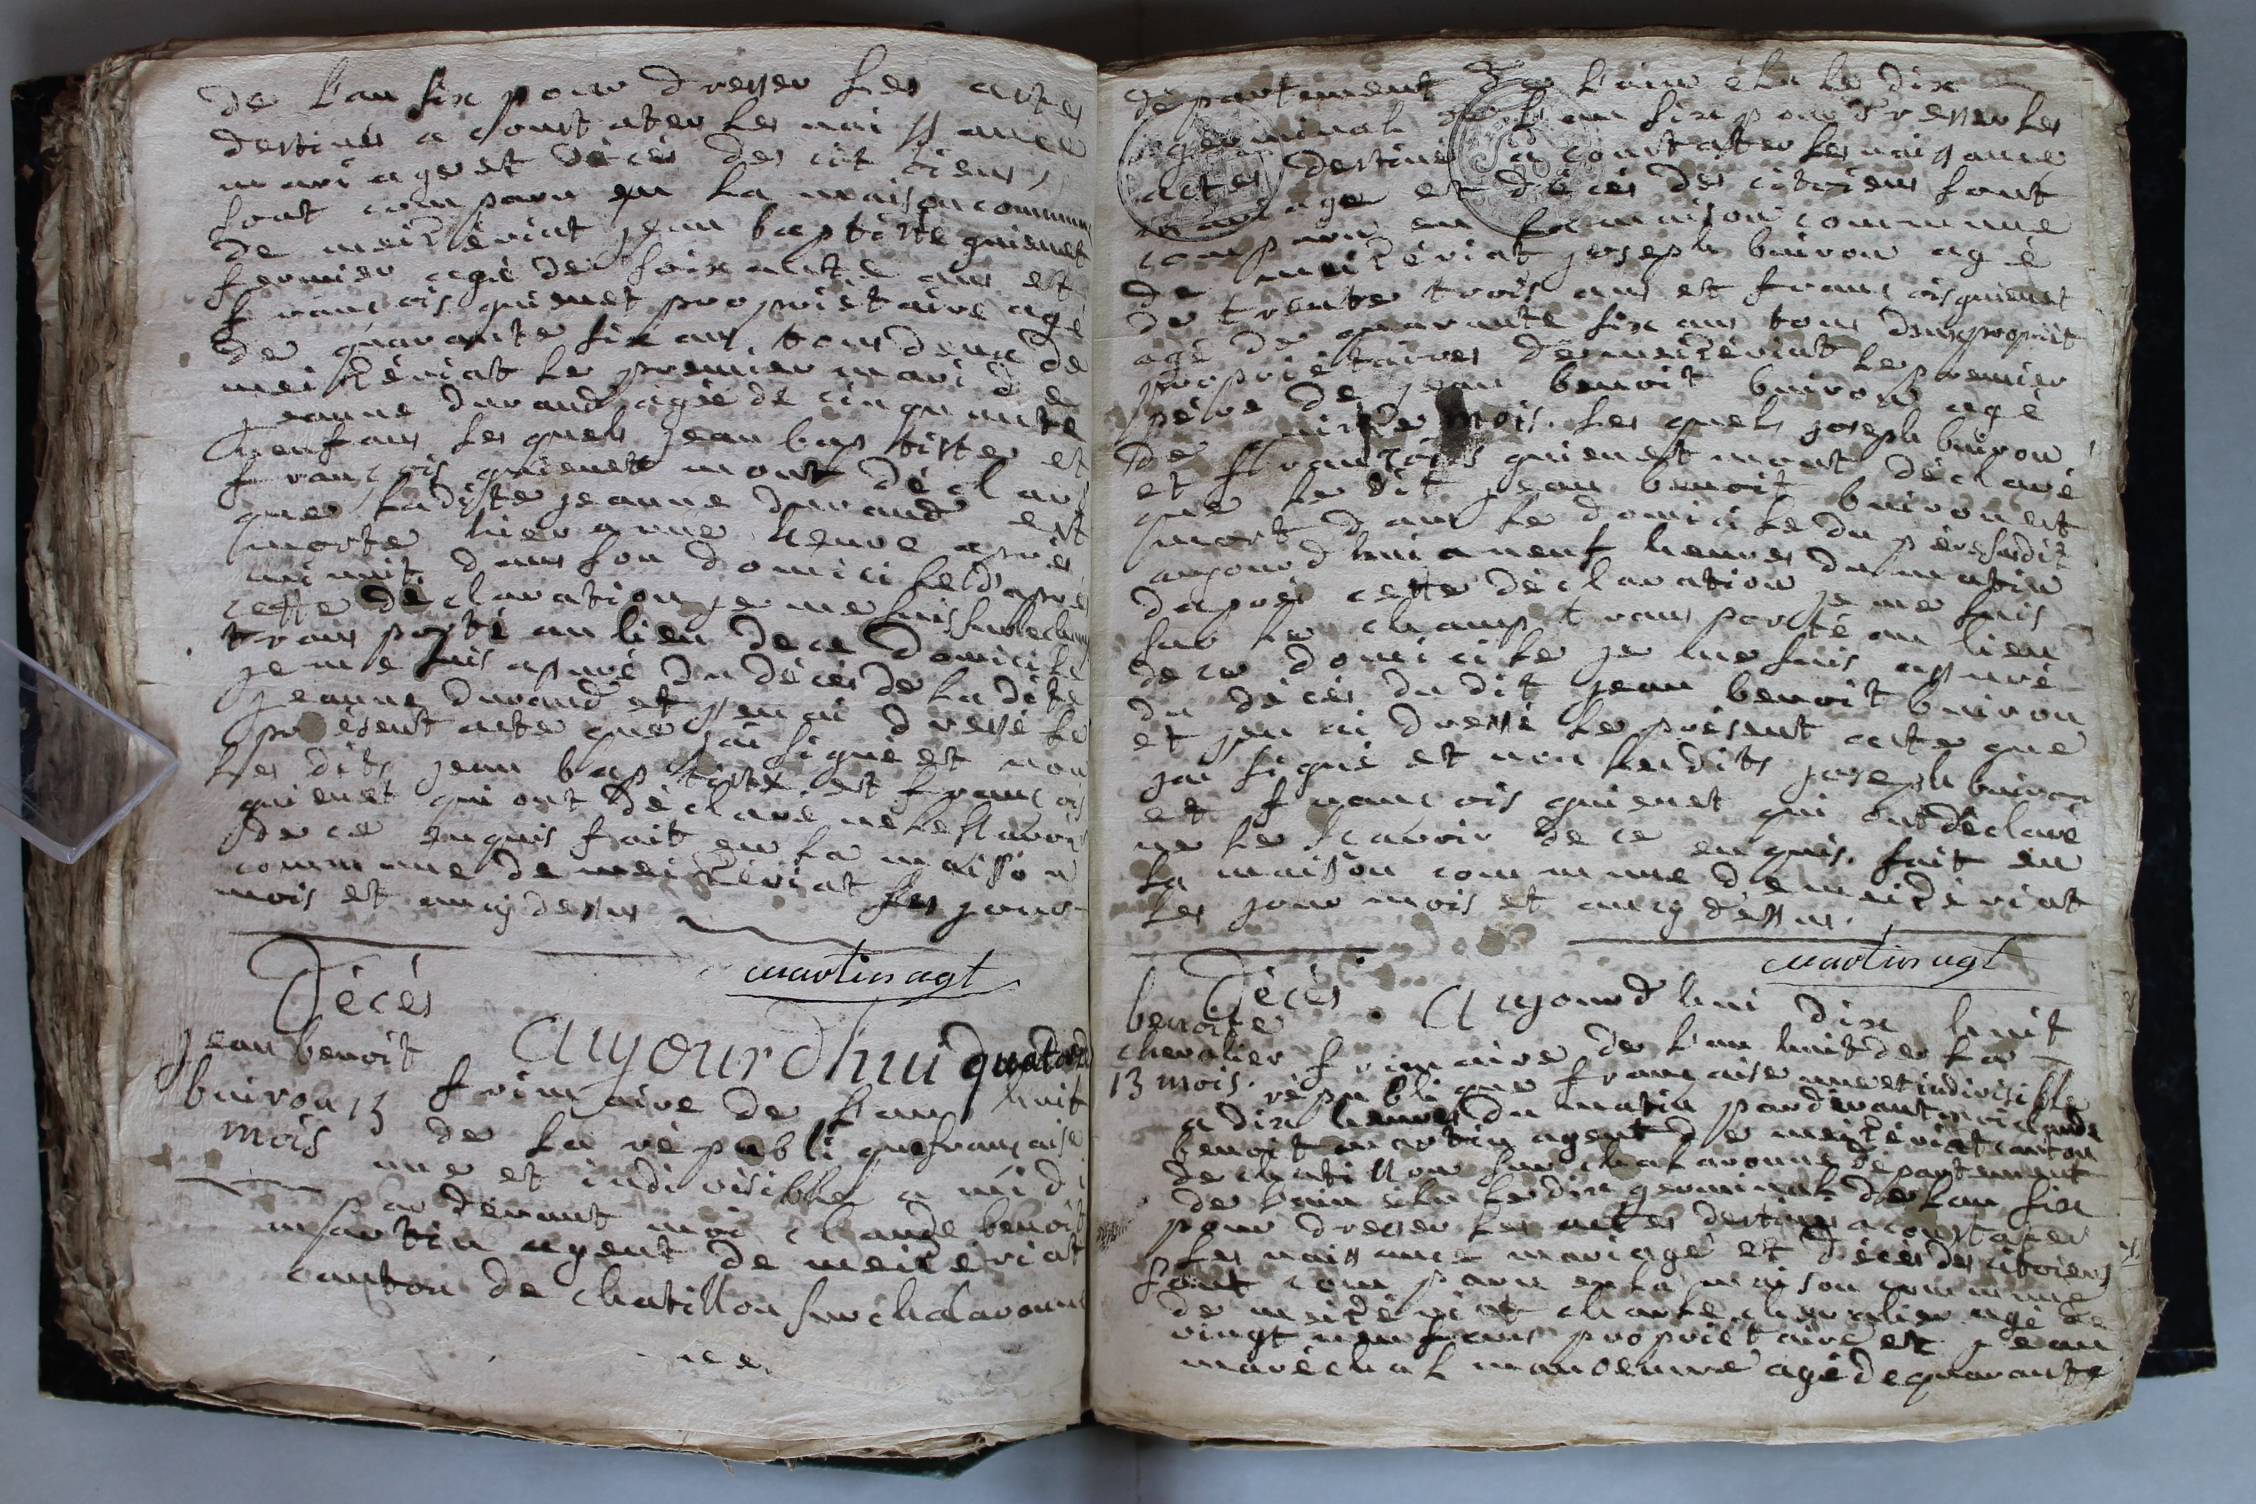 de l'an six pour dresser les actes
destinés a constater les naissance
mariage et décés des citoiens
sont comparu en la maison commune
de meizériat jean baptiste guienet
fermier agé de soixante ans et
francois guienet propriétaire agé
de quarante six ans, tous deux de
meizériat le premier mari de
jeanne durand agée de cinquante
neuf ans les quels jean baptiste et
francois guienet mont déclaré
que ladite jeanne durand est
morte hier a une heure aprés
minuit dans son domicile d'aprés
cette déclaration je me suis sur le champ
transporté au lieu de ce domicile
je me suis assuré du décés de la dite
jeanne durand et jen ai dressé le
présent acte que jai signé et non
les dits jean baptiste et francois
guienet qui ont déclaré ne le scavoir
de ce enquis fait en la maison
commune de meizériat les jour
mois et an cy dessus
martin agt
Décés
jean benoit
buiron 13
mois
Aujourdhui quatorze
frimaire de l'an huit
de la république française
une et indivisible a midi
par devant moi claude benoit
martin agent de meizériat
canton de chatillon sur chalaronne
département de l'ain élu le dix
germinal de l'an six pour dresser les
actes destinés a constater les naissance
mariage et décés des citoiens sont
comparu en la maison commune
de meizériat joseph buiron agé
de trente trois ans et francois guienet
agé de quarante six ans tous deux propriét
propriétaires de meizériat le premier
pére de jean benoit buiron agé
de mois. les quels joseph buiron
et francois guienet mont déclaré
que le dit jean benoit buiron est
mort dans le domicile du pére susdit
aujourdhui a neuf heures du matin
daprés cette déclaration je me suis
sur le champ transporté au lieu
de ce domicile je me suis assuré
du décés du dit jean benoit buiron
et jen ai dressé le présent acte que
jai signé et non les dits joseph buiron
et francois guienet qui ont déclaré
ne le scavoir de ce enquis. fait en
la maison commune de meizériat
les jour mois et an cy dessus.
martin agt
Décés
benoite
chevalier
13 mois.
Aujourdhui dix huit
frimaire de l'an huit de la
république francaise une et indivisible
a dix heures du matin pardevant moi claude
benoit martin agent de meizériat canton
de chatillon sur chalaronne département
de lain élu le dix germinal de lan six
pour dresser les actes destinés a constater
les naissance mariage et décés des citoiens
sont comparu en la maison commune
de meizériat charle chevalier agé de
vingt neuf ans propriétaire et jean
maréchal manoeuvre agé de quarante